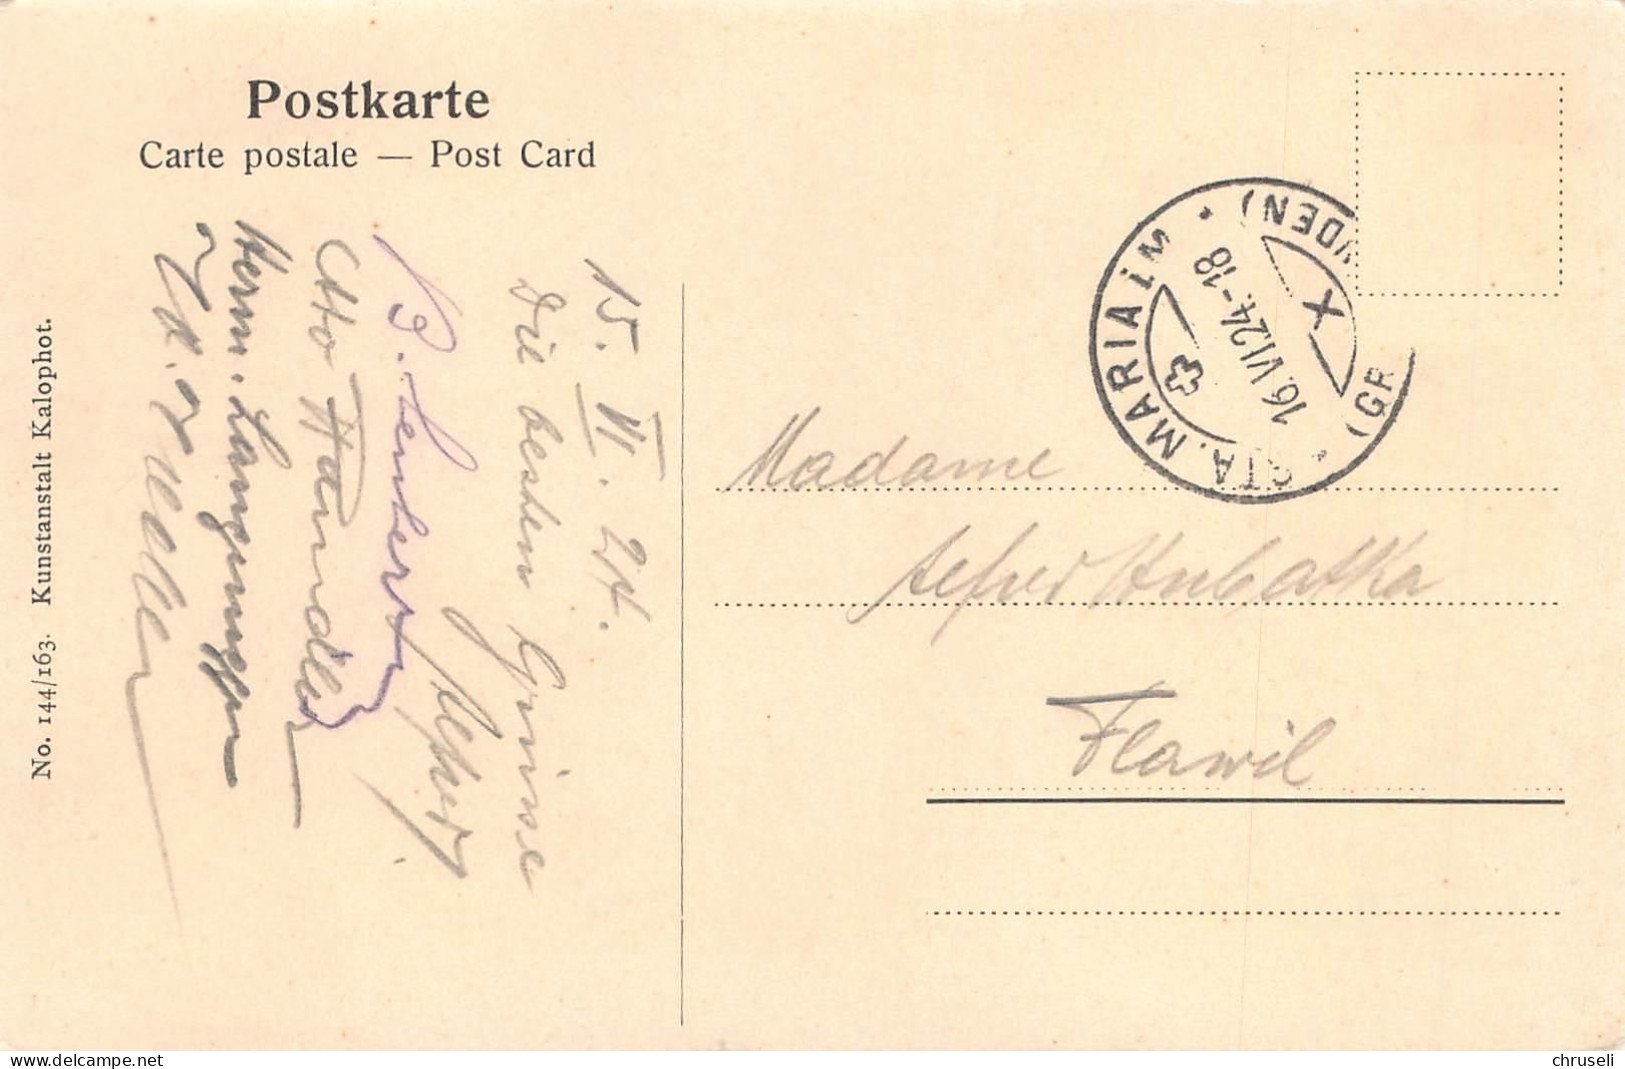 Postkarte
Carte postale — Post Card
15. VI. 24.
Die besten Grüsse
Alfred.
Otto Haendler
Herm. Langenegger
No. 144/163. Kunstanstalt Kalophot.
STA. MARIA i. M
(GR
NDEN)
16.VI.24.-18
X
Madame
Alfred Hubatka
Flawil
www.delcampe.net
chruseli